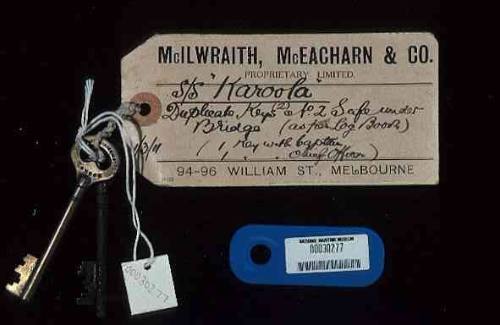 McILWRAITH, McEACHARN & CO.
PROPRIETARY LIMITED.
S/S "Karoola"
Duplicate Keys (2) No 2 Safe under
Bridge (as per Log Book)
/3/11 (1 Key with Captain
1 " " Chief Officer)
94-96 WILLIAM ST., MELBOURNE
00030277
NATIONAL MARITIME MUSEUM
00030277